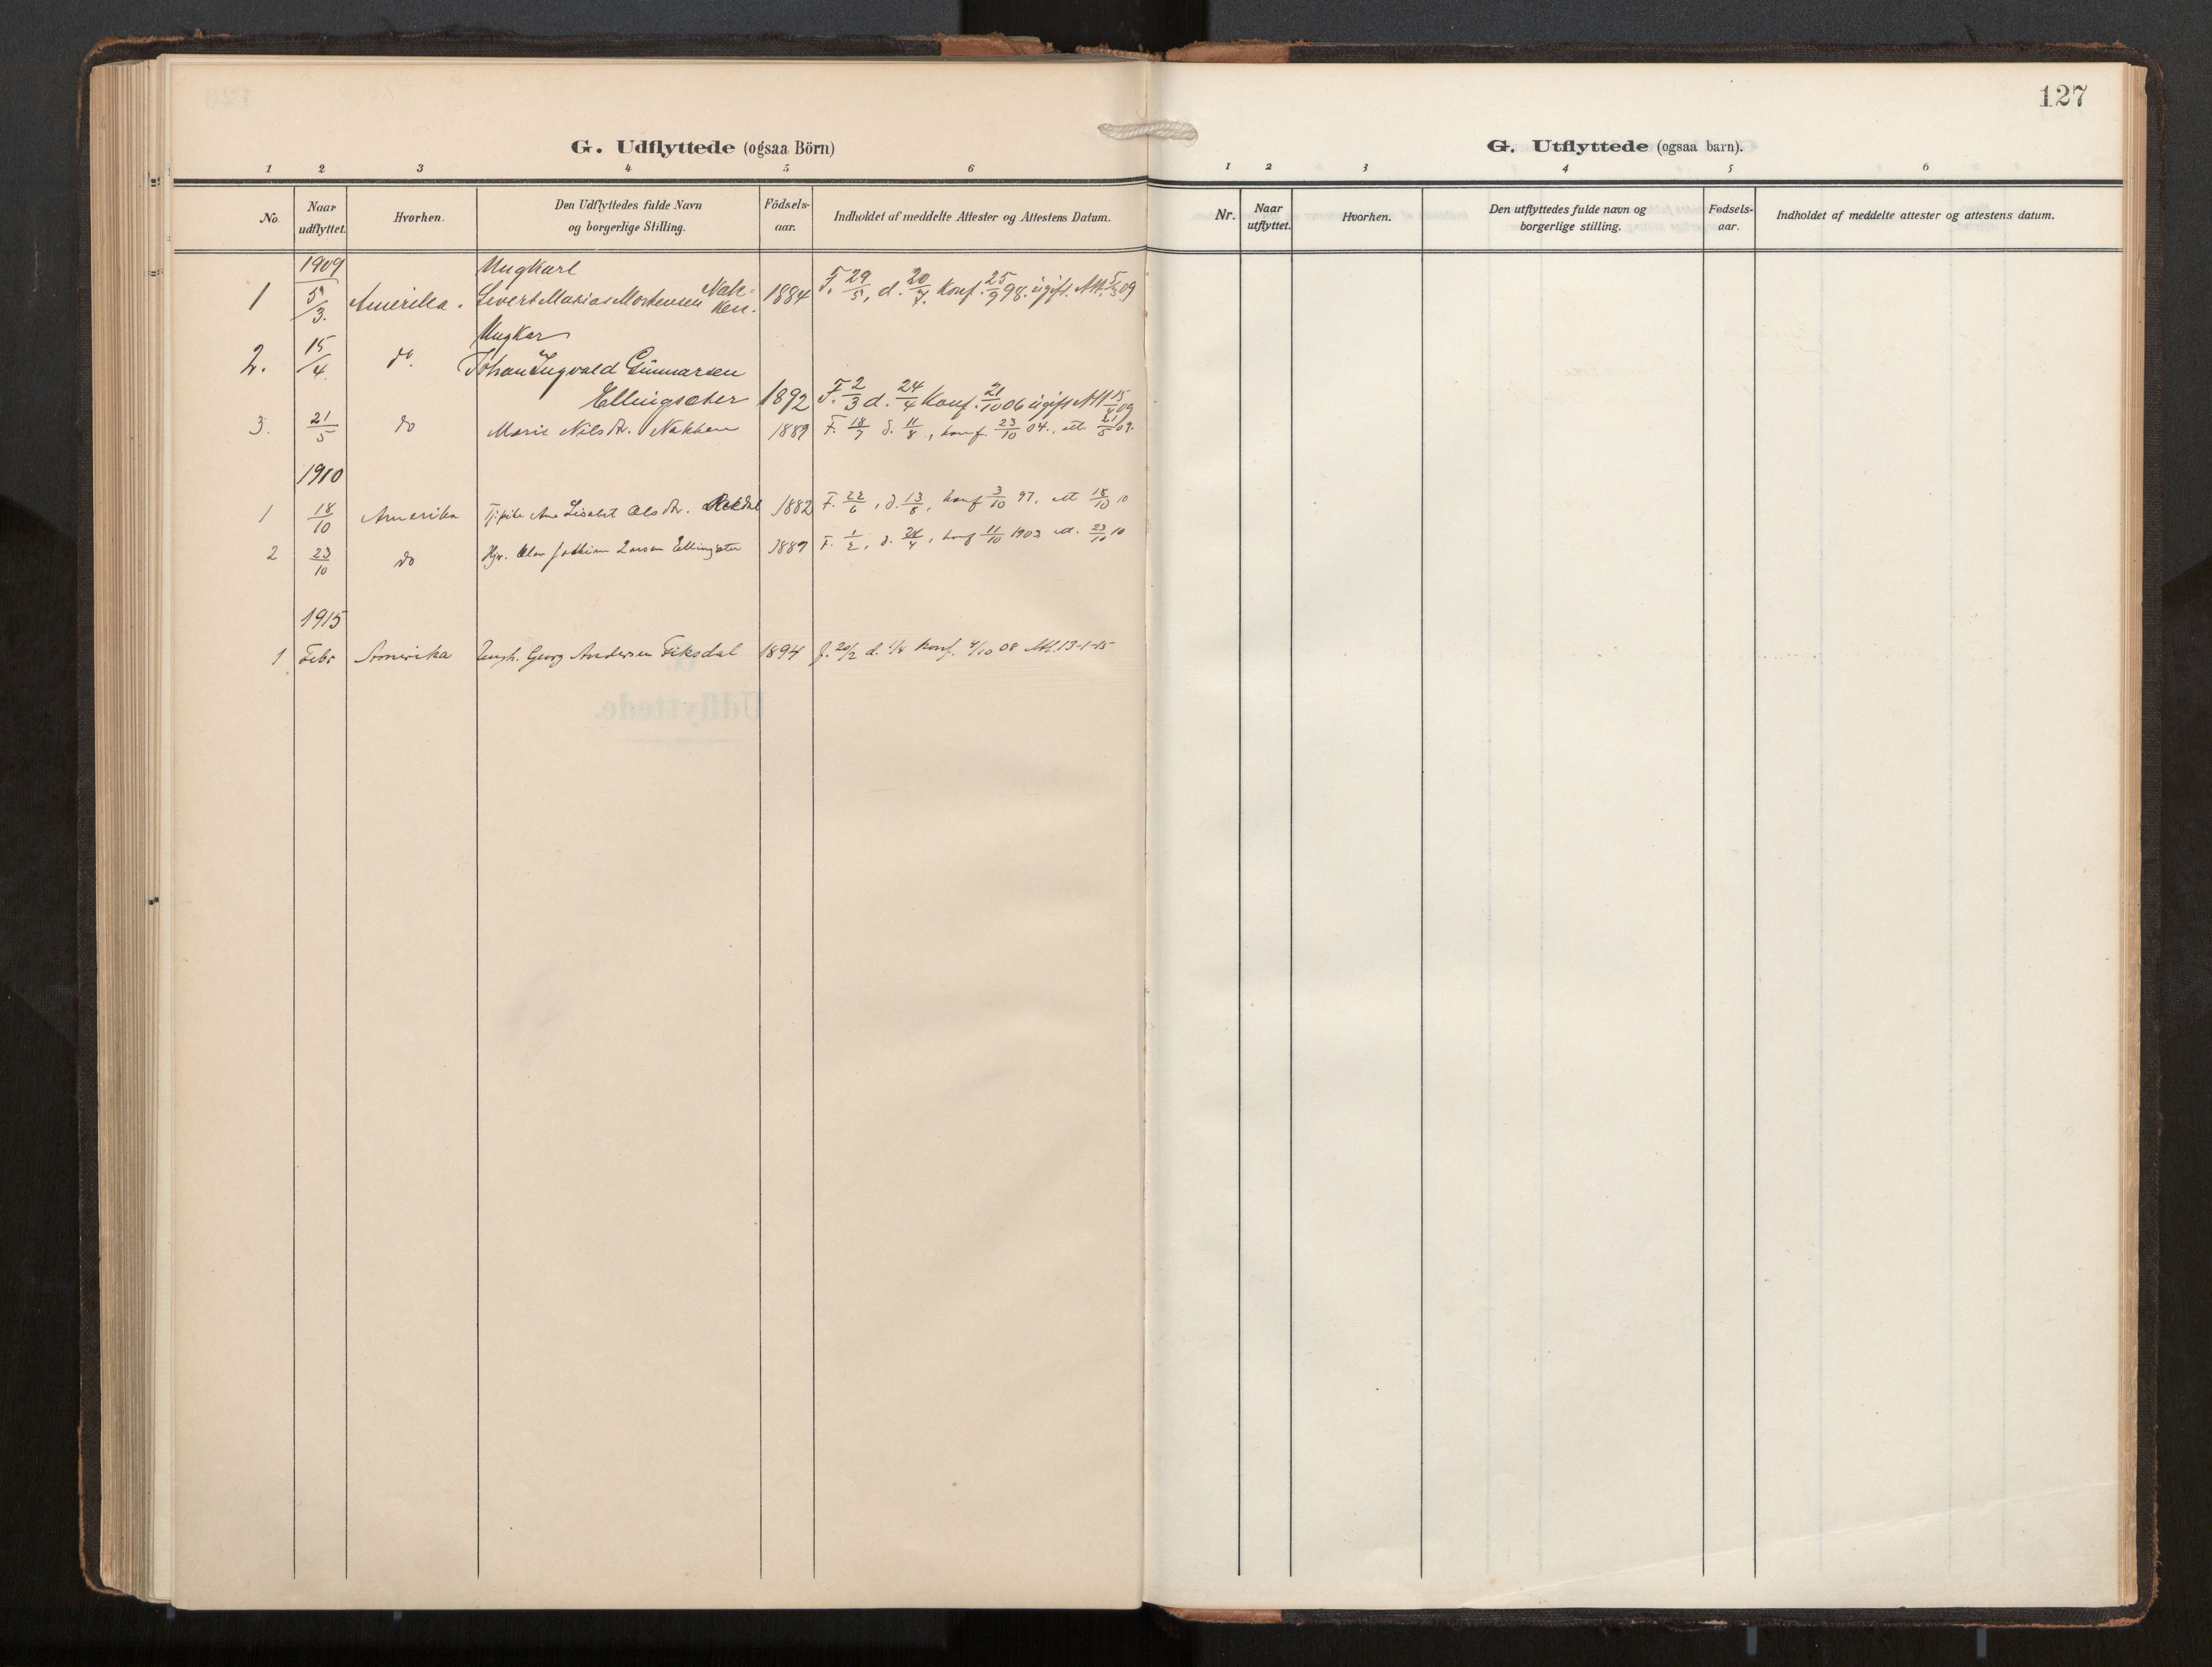 127
G. Udflyttede (ogsaa Börn)
1 2 3 4 5 6
No. Naar udflyttet. Hvorhen. Den Udflyttedes fulde Navn og borgerlige Stilling. Födsels-aar. Indholdet af meddelte Attester og Attestens Datum.
1909 Ungkarl
1 5/3. Amerika. Sivert Matias Mortensen Nakken. 1884 F. 29/5, d. 20/7. Konf. 25/9 98. ugift. Att. 5/3 09
Ungkar
2. 15/4. do. Johan Ingvald Gunnarsen
Ellingsæter 1892 F. 2/3 d. 24/4 Konf. 21/10 06 ugift Att 15/4 09
3. 21/5 do Marie Nilsdr. Nakken 1889 F. 18/7 d. 11/8, konf. 23/10 04., att. 21/5 09.
1910
1 18/10 Amerika Ane Lisabet Olsdr. 1882 F. 22/6, d. 13/8, konf 3/10 97, att 18/10 10
2 23/10 do Larsen Ellingsæter 1889 F. 1/2, d. 24/4, konf 11/10 1903 att. 23/10 10
1915
1 Febr Amerika Ungk. Georg Andersen Fiksdal 1894 f. 20/2 d. 1/4 Konf. 4/10 08 Att. 13-1-15
G. Utflyttede (ogsaa barn).
1 2 3 4 5 6
Nr. Naar utflyttet. Hvorhen. Den utflyttedes fulde navn og borgerlige stilling. Fødsels-aar. Indholdet af meddelte attester og attestens datum.